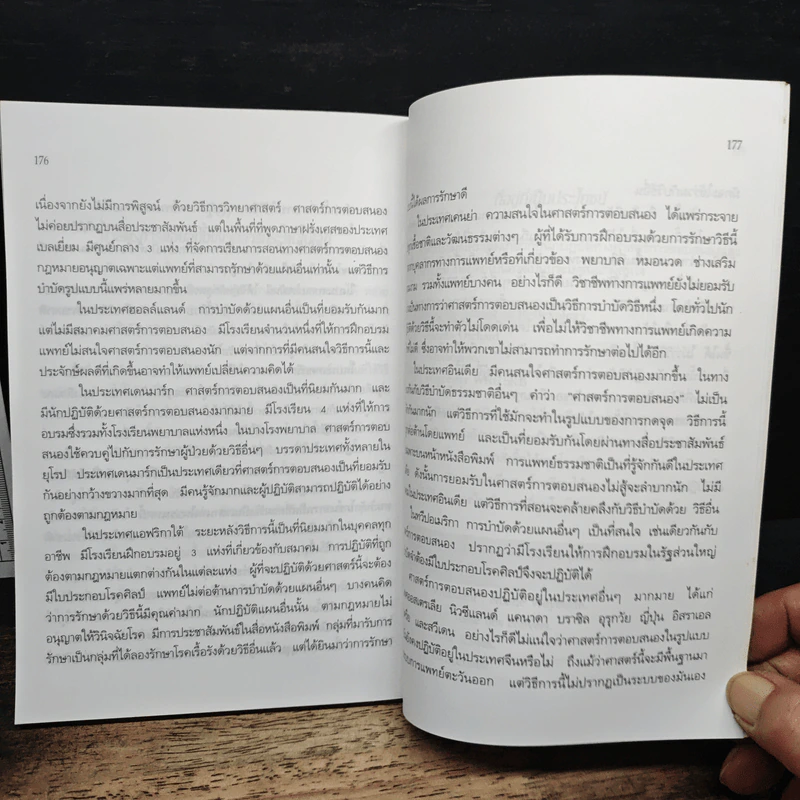 176
เนื่องจากยังไม่มีการพิสูจน์ ด้วยวิธีการวิทยาศาสตร์ ศาสตร์การตอบสนอง
ไม่ค่อยปรากฏบนสื่อประชาสัมพันธ์ แต่ในพื้นที่ที่พูดภาษาฝรั่งเศสของประเทศ
เบลเยี่ยม มีศูนย์กลาง 3 แห่ง ที่จัดการเรียนการสอนทางศาสตร์การตอบสนอง
กฎหมายอนุญาตเฉพาะแต่แพทย์ที่สามารถรักษาด้วยแผนอื่นเท่านั้น แต่วิธีการ
บำบัดรูปแบบนี้แพร่หลายมากขึ้น
ในประเทศฮอลล์แลนด์ การบำบัดด้วยแผนอื่นเป็นที่ยอมรับกันมาก
แต่ไม่มีสมาคมศาสตร์การตอบสนอง มีโรงเรียนจำนวนหนึ่งที่ให้การฝึกอบรม
แพทย์ไม่สนใจศาสตร์การตอบสนองนัก แต่จากการที่มีคนสนใจวิธีการนี้และ
ประจักษ์ผลดีที่เกิดขึ้นอาจทำให้แพทย์เปลี่ยนความคิดได้
ในประเทศเดนมาร์ก ศาสตร์การตอบสนองเป็นที่นิยมกันมาก และ
มีนักปฏิบัติด้วยศาสตร์การตอบสนองมากมาย มีโรงเรียน 4 แห่งที่ให้การ
อบรมซึ่งรวมทั้งโรงเรียนพยาบาลแห่งหนึ่ง ในบางโรงพยาบาล ศาสตร์การตอบ
สนองใช้ควบคู่ไปกับการรักษาผู้ป่วยด้วยวิธีอื่นๆ บรรดาประเทศทั้งหลายใน
ยุโรป ประเทศเดนมาร์กเป็นประเทศเดียวที่ศาสตร์การตอบสนองเป็นที่ยอมรับ
กันอย่างกว้างขวางมากที่สุด มีคนรู้จักมากและผู้ปฏิบัติสามารถปฏิบัติได้อย่าง
ถูกต้องตามกฎหมาย
ในประเทศแอฟริกาใต้ ระยะหลังวิธีการนี้เป็นที่นิยมมากในบุคคลทุก
อาชีพ มีโรงเรียนฝึกอบรมอยู่ 3 แห่งที่เกี่ยวข้องกับสมาคม การปฏิบัติที่ถูก
ต้องตามกฎหมายแตกต่างกันในแต่ละแห่ง ผู้ที่จะปฏิบัติด้วยศาสตร์นี้จะต้อง
มีใบประกอบโรคศิลป์ แพทย์ไม่ต่อต้านการบำบัดด้วยแผนอื่นๆ บางคนคิด
ว่าการรักษาด้วยวิธีนี้มีคุณค่ามาก นักปฏิบัติแผนอื่นนั้น ตามกฎหมายไม่
อนุญาตให้วินิจฉัยโรค มีการประชาสัมพันธ์ในสื่อหนังสือพิมพ์ กลุ่มที่มารับการ
รักษาเป็นกลุ่มที่ได้ลองรักษาโรคเรื้อรังด้วยวิธีอื่นแล้ว แต่ได้ยินมาว่าการรักษา
177
นี้ได้ผลการรักษาดี
ในประเทศเคนย่า ความสนใจในศาสตร์การตอบสนอง ได้แพร่กระจาย
เชื้อชาติและวัฒนธรรมต่างๆ ผู้ที่ได้รับการฝึกอบรมด้วยการรักษาวิธีนี้
บุคลากรทางการแพทย์หรือที่เกี่ยวข้อง พยาบาล หมอนวด ช่างเสริม
รวมทั้งแพทย์บางคน อย่างไรก็ดี วิชาชีพทางการแพทย์ยังไม่ยอมรับ
เป็นทางการว่าศาสตร์การตอบสนองเป็นวิธีการบำบัดวิธีหนึ่ง โดยทั่วไปนัก
ด้วยวิธีนี้จะทำตัวไม่โดดเด่น เพื่อไม่ให้วิชาชีพทางการแพทย์เกิดความ
ซึ่งอาจทำให้พวกเขาไม่สามารถทำการรักษาต่อไปได้อีก
ในประเทศอินเดีย มีคนสนใจศาสตร์การตอบสนองมากขึ้น ในทาง
กับวิธีบำบัดธรรมชาติอื่นๆ คำว่า "ศาสตร์การตอบสนอง" ไม่เป็น
กันมากนัก แต่วิธีการที่ใช้มักจะทำในรูปแบบของการกดจุด วิธีการนี้
ต่อต้านโดยแพทย์ และเป็นที่ยอมรับกันโดยผ่านทางสื่อประชาสัมพันธ์
บนหน้าหนังสือพิมพ์ การแพทย์ธรรมชาติเป็นที่รู้จักกันดีในประเทศ
ดังนั้นการยอมรับในศาสตร์การตอบสนองไม่สู้จะลำบากนัก ไม่มี
ในประเทศอินเดีย แต่วิธีการที่สอนจะคล้ายคลึงกับวิธีบำบัดด้วย วิธีอื่น
ในทวีปอเมริกา การบำบัดด้วยแผนอื่นๆ เป็นที่สนใจ เช่นเดียวกันกับ
การตอบสนอง ปรากฏว่ามีโรงเรียนให้การฝึกอบรมในรัฐส่วนใหญ่
ต้องมีใบประกอบโรคศิลป์จึงจะปฏิบัติได้
ศาสตร์การตอบสนองปฏิบัติอยู่ในประเทศอื่นๆ มากมาย ได้แก่
นิวซีแลนด์ แคนาดา บราซิล อุรุกวัย ญี่ปุ่น อิสราเอล
และสวีเดน อย่างไรก็ดีไม่แน่ใจว่าศาสตร์การตอบสนองในรูปแบบ
ปฏิบัติอยู่ในประเทศจีนหรือไม่ ถึงแม้ว่าศาสตร์นี้จะมีพื้นฐานมา
การแพทย์ตะวันออก แต่วิธีการนี้ไม่ปรากฏเป็นระบบของมันเอง